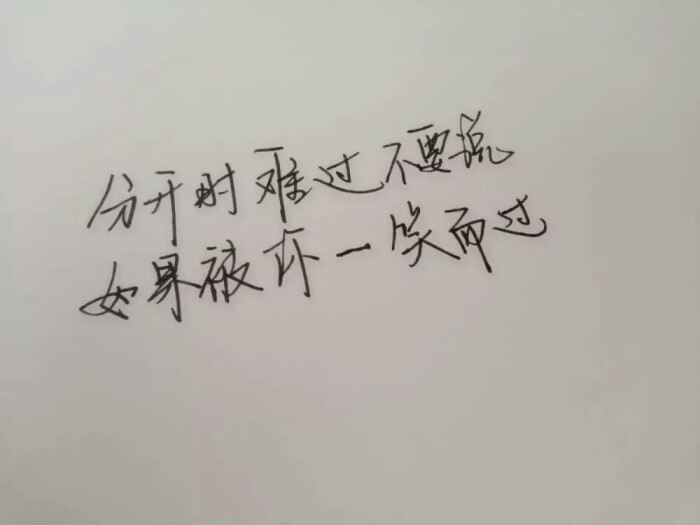 分开时难过不要说
如果被一笑而过